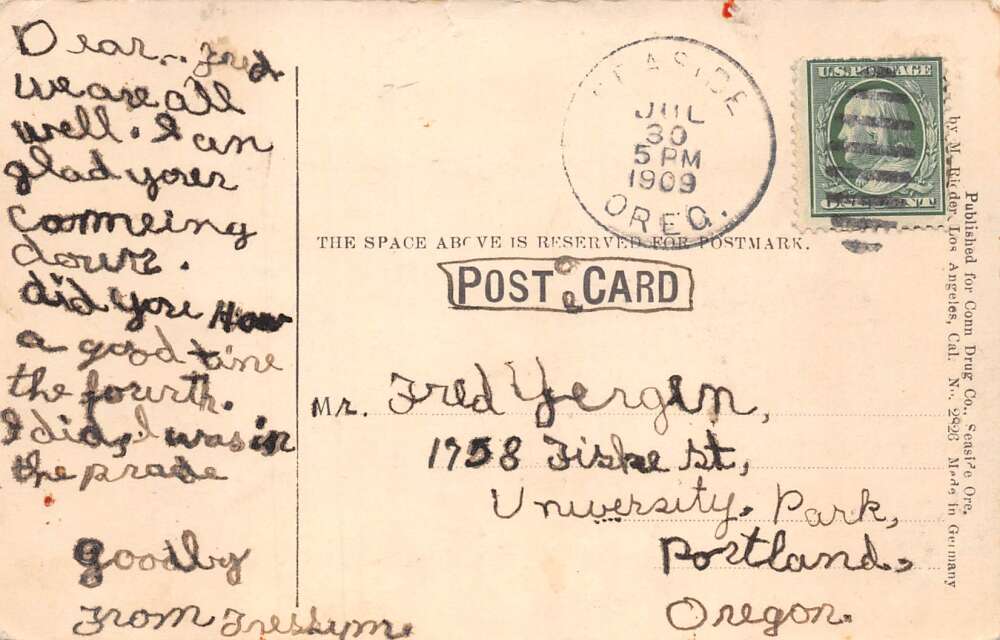 Dear. Fred.
we are all
well. I am
glad your
Commeing
down.
did you Have
a good time
the fourth.
I did, I was in
the prade
goodby
From
SEASIDE
JUL
30
5 PM
1909
OREG.
U.S. POSTAGE
THE SPACE ABOVE IS RESERVED FOR POSTMARK.
POST CARD
Mr. Fred Yergen,
1758 Fiske St,
University. Park,
Portland,
Oregon.
Published for Conn Drug Co., Seaside Ore.
by M. Rieder, Los Angeles, Cal. No. 2926 Made in Germany